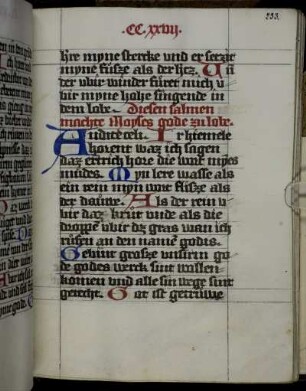 CC.xxvij.
233.
hie myne stercke vnd er seczit
myne fusze als der hirtz. Vn
der vbir winder füret mich v
bir myne hohe singende in
dem lobe. Diesen salmen
machte Moyses gode zu lobe.
Audite celi. Ir hiemele
horent waz ich sagen
daz ertrich hore die wort mynes
mudes. Myn lere wasse als
ein rein myn wort flisze als
der dauwe. Als der rein v
bir daz krut vnde als die
droppe vbir diz gras wan ich
rüffen an den namen godis.
Gebent grosze vnsirm go
de godes werck sint vollen
komen vnd alle sin wege sint
gerecht. Got ist getruwe